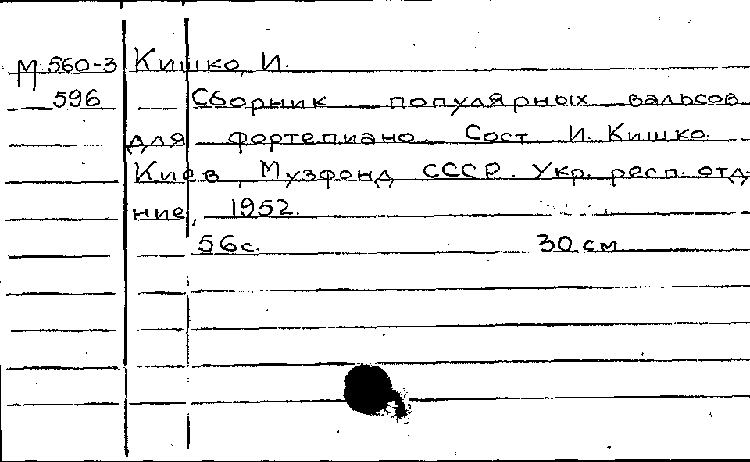 М 560-3 Кишко, И.
596 Сборник популярных вальсов
для фортепиано. Сост. И. Кишко.
Киев, Музфонд СССР. Укр. респ. отд-
ние, 1952.
56 с. 30 см